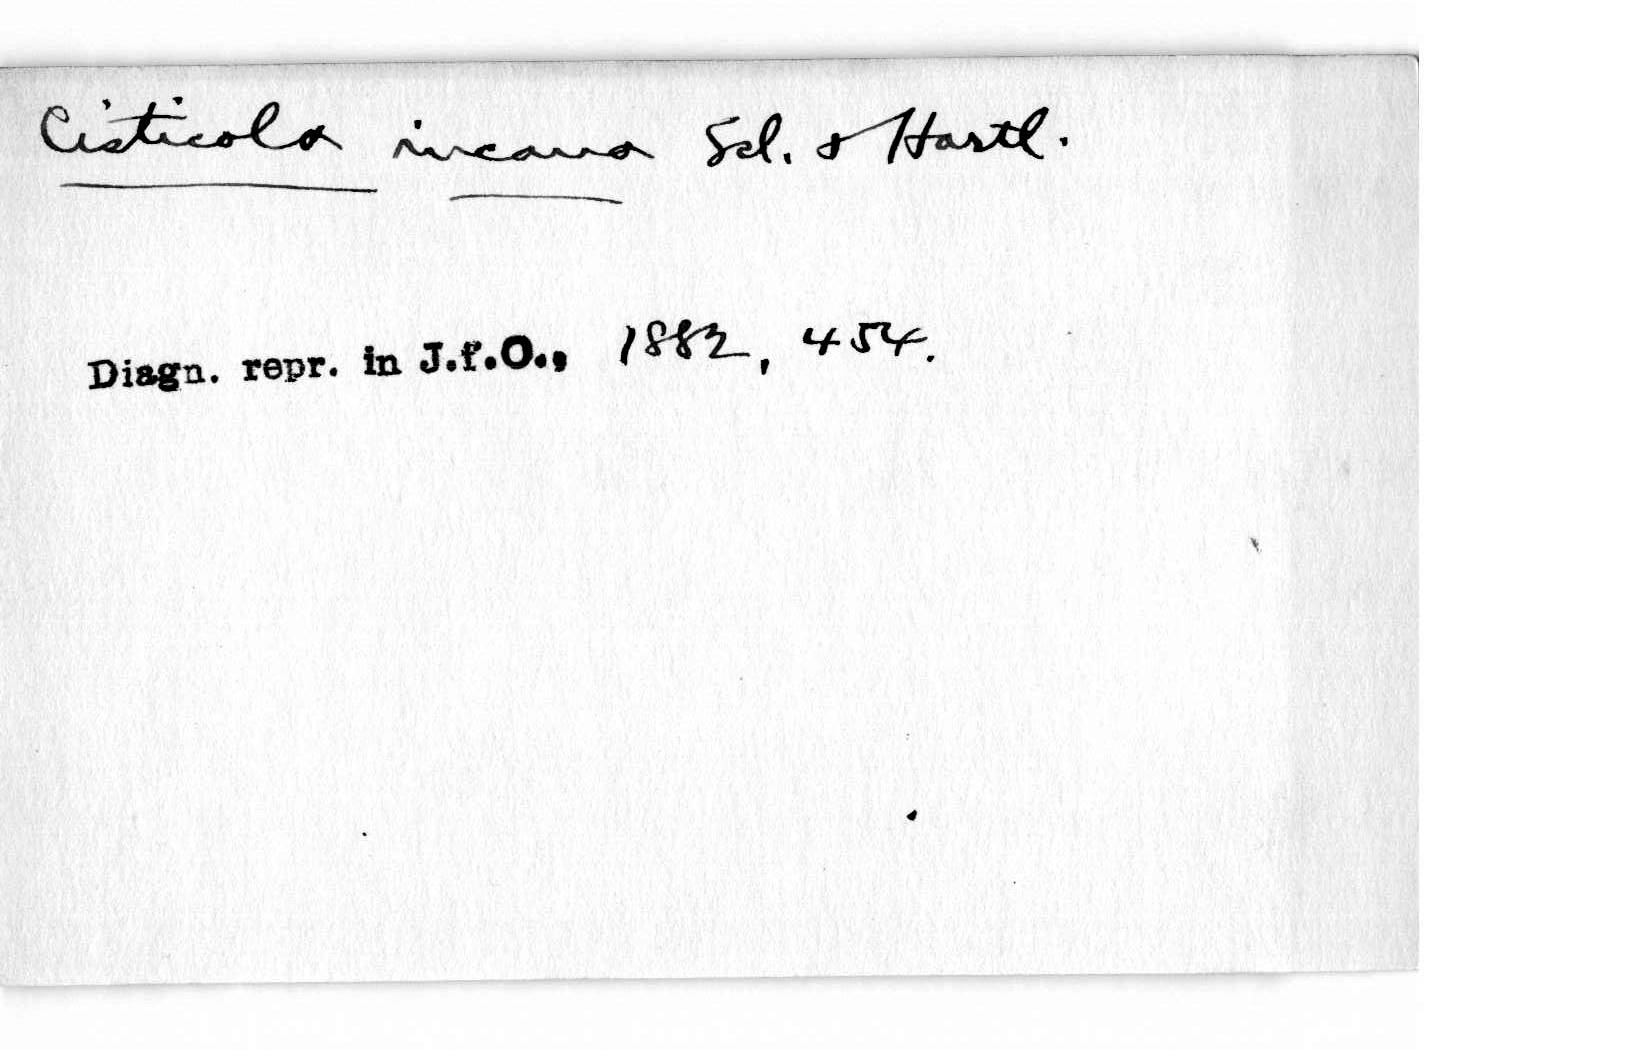 Cisticola incana Scl. & Hartl.
Diagn. repr. in J.f.O., 1882, 454.